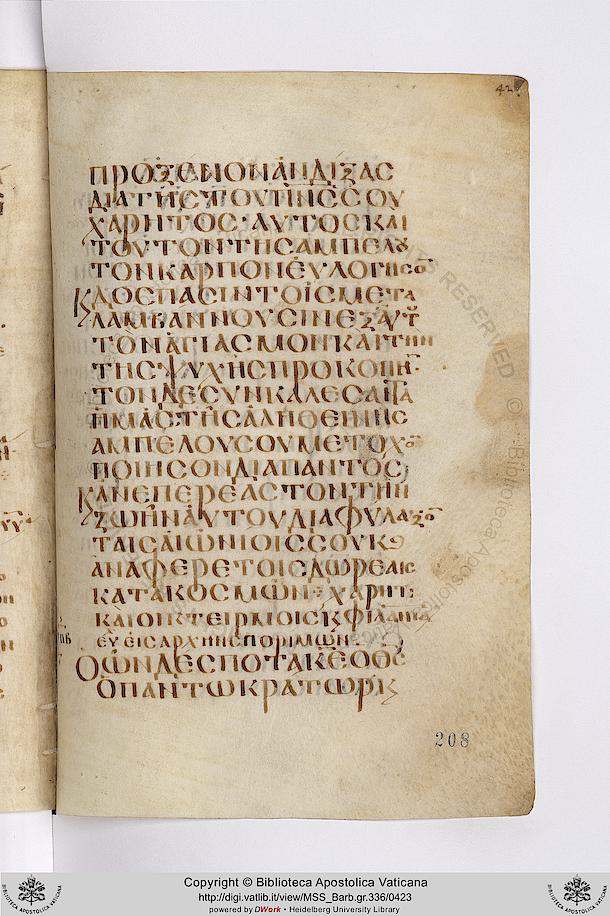 42
ΠΡΟΞΕΝΙΟΝ ΑΝΔΙΞΑΣ
ΔΙΑ ΤΗΣ ΤΟΥ ΠΝΣ ΣΟΥ
ΧΑΡΗΤΟΣ· ΑΥΤΟΣ ΚΑΙ
ΤΟΥΤΟΝ ΤΗΣ ΑΜΠΕΛΟΥ
ΤΟΝ ΚΑΡΠΟΝ ΕΥΛΟΓΗΣΟ
ΚΑΘΕ ΠΑΣΙΝ ΤΟΙΣ ΜΕΤΑ
ΛΑΜΒΑΝΝΟΥΣΙΝ ΕΞ ΑΥΤΟΥ
ΤΟΝ ΑΓΙΑΣΜΟΝ ΚΑΙ ΤΗΝ
ΤΗΣ ΨΥΧΗΣ ΠΡΟΚΟΠΗ
ΤΟΝ ΔΕ ΣΥΝΚΑΛΕΣΑΝΤΑ
ΗΜΑΣ ΤΗΣ ΑΛΗΘΕΙΝΗΣ
ΑΜΠΕΛΟΥ ΣΟΥ ΜΕΤΟΧΟ
ΠΟΙΗΣΟΝ ΔΙΑΠΑΝΤΟΣ
ΚΑΝΕΠΕΡΕΑΣΤΟΝ ΤΗΝ
ΖΩΗΝ ΑΥΤΟΥ ΔΙΑΦΥΛΑΞΟ
ΤΑΙΣ ΑΙΩΝΙΟΙΣ ΣΟΥ Κ
ΑΝΑΦΕΡΕΤΟΙΣ ΔΩΡΕΑΙΣ
ΚΑΤΑΚΟΣΜΩΝ· ΧΑΡΗΤΙ
ΚΑΙ ΟΙΚΤΕΙΡΜΟΙΣ Κ ΦΙΛΑΝΙΑ
ΕΥ ΕΙΣ ΑΡΧΗΝ ΣΠΟΡΙΜΩΝ
Ο ΩΝ ΔΕΣΠΟΤΑ ΚΕ Ο ΘΣ
Ο ΠΑΝΤΩΚΡΑΤΩΡ Κ
208
RIGHTS RESERVED © Biblioteca Apostolica
Copyright © Biblioteca Apostolica Vaticana
http://digi.vatlib.it/view/MSS_Barb.gr.336/0423
powered by DWork • Heidelberg University Library